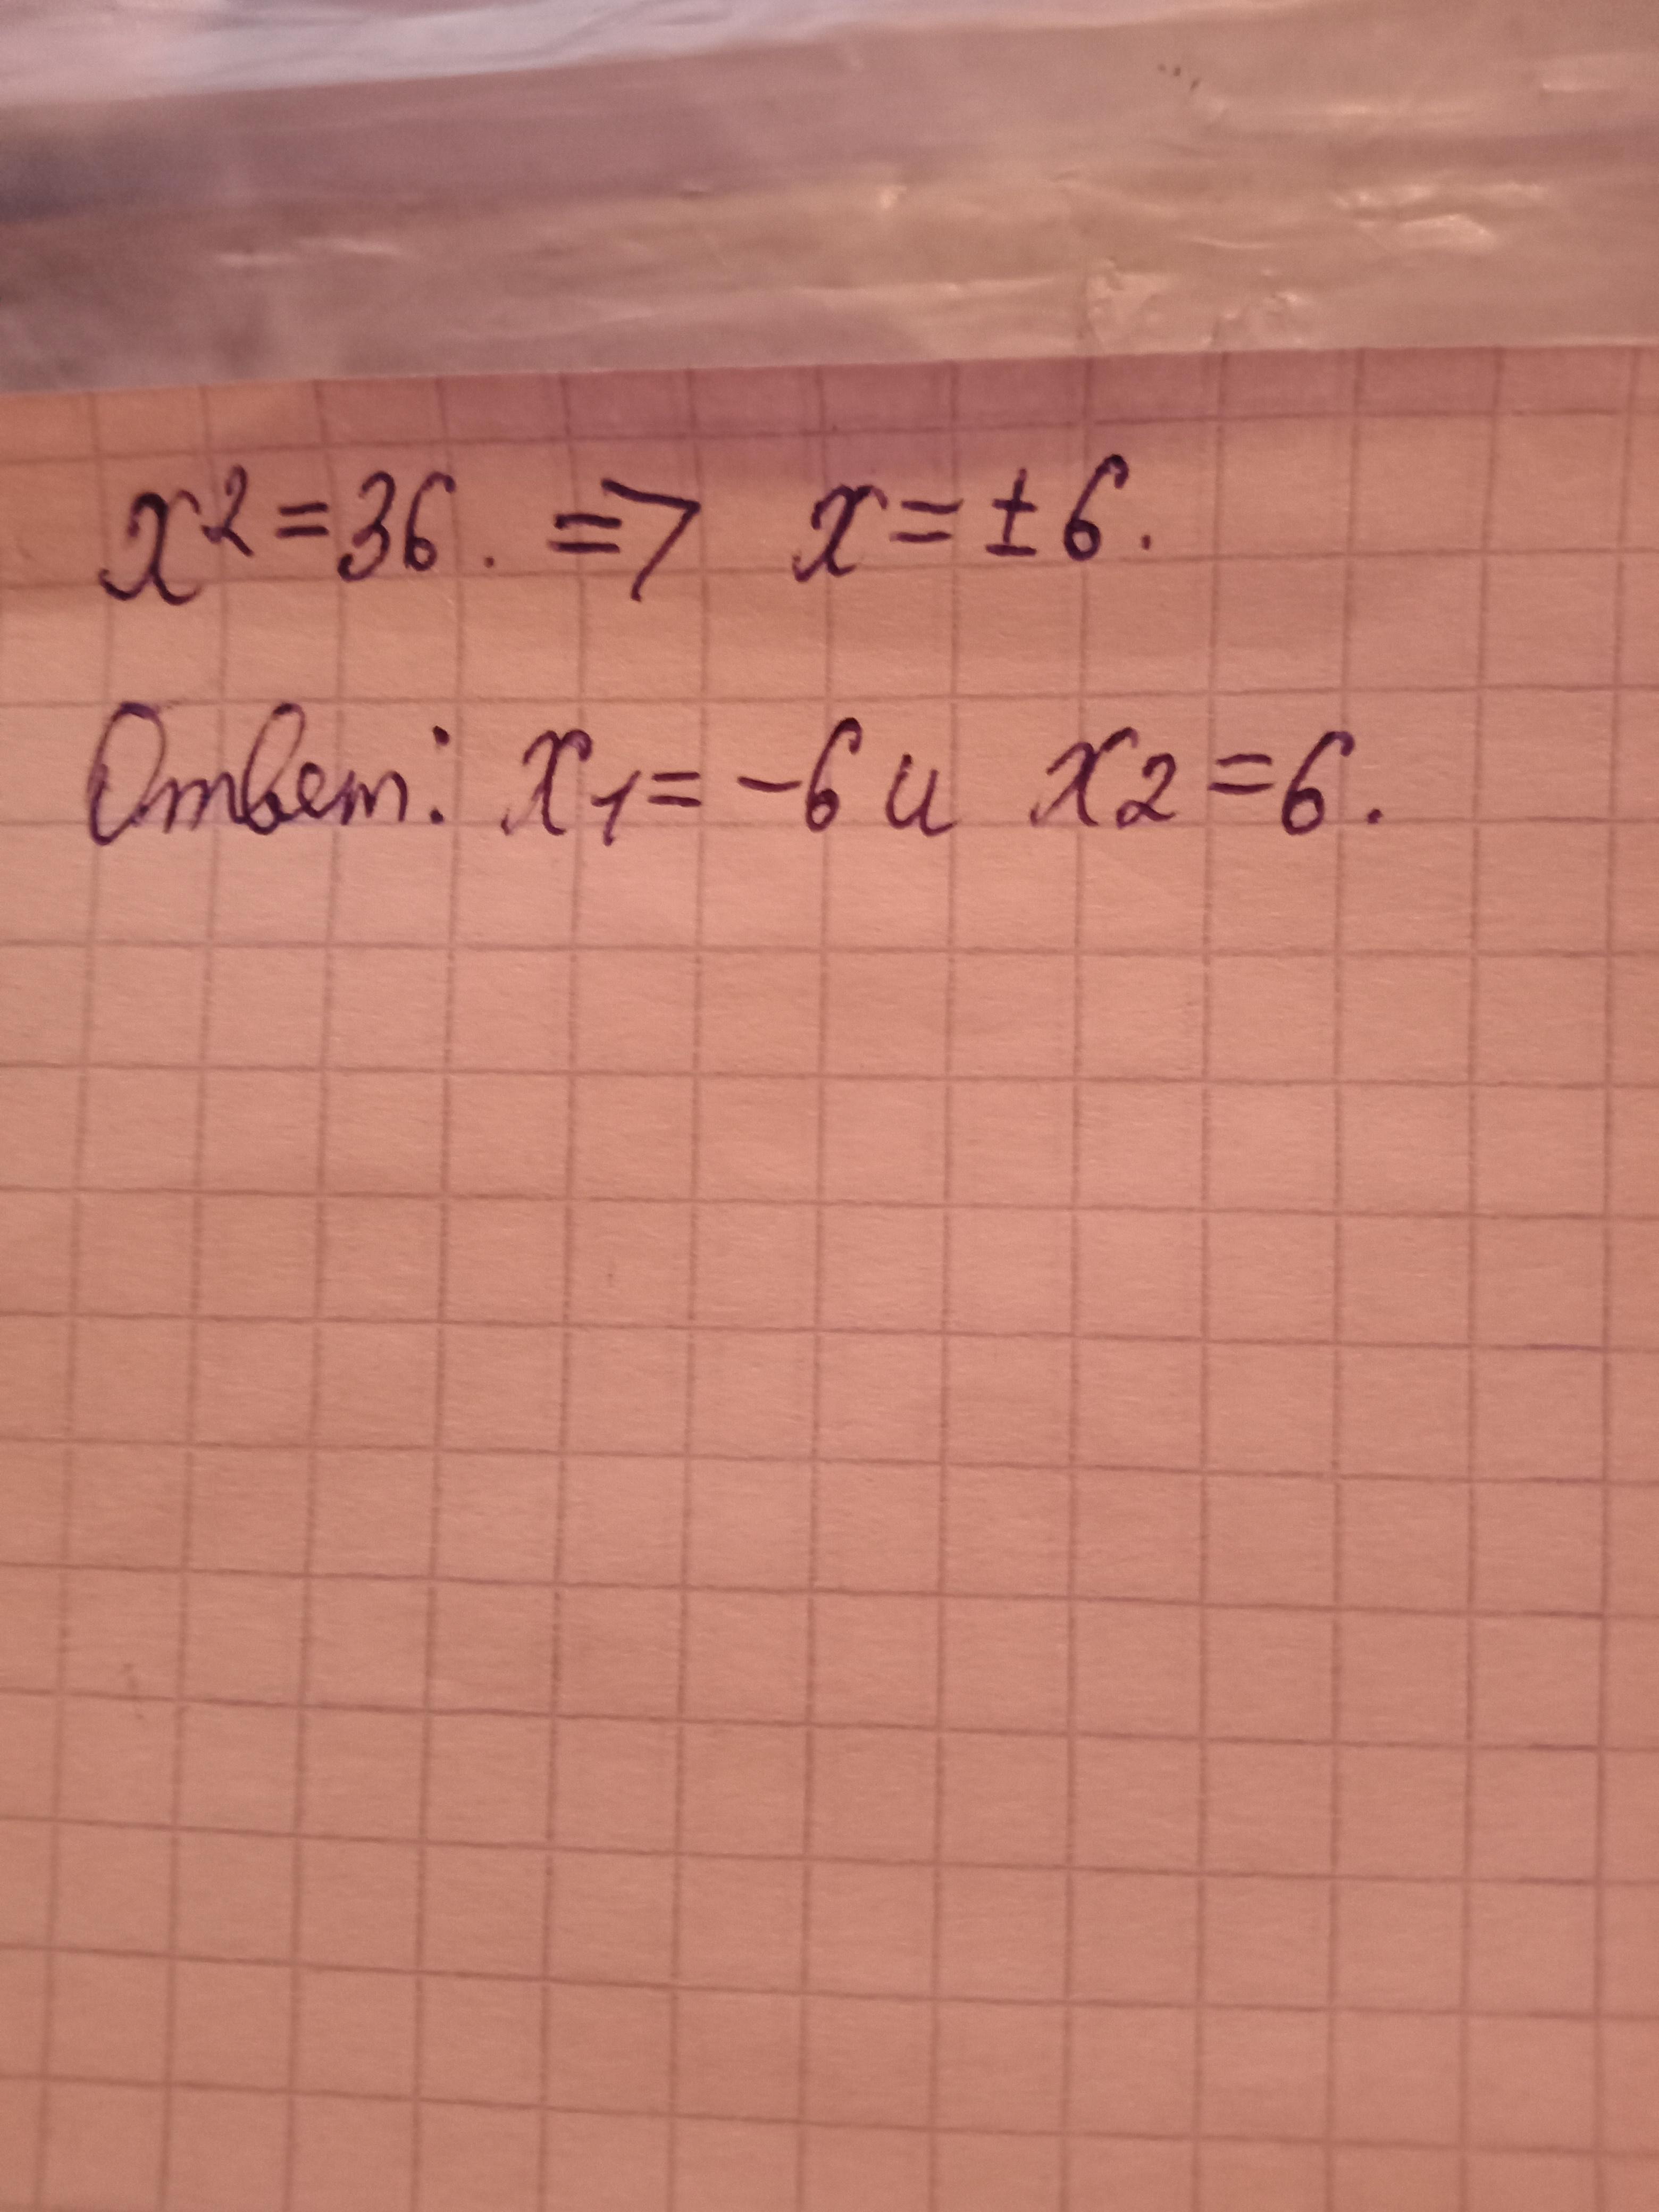 x² = 36. => x = ± 6.
Ответ: x₁ = -6 и x₂ = 6.